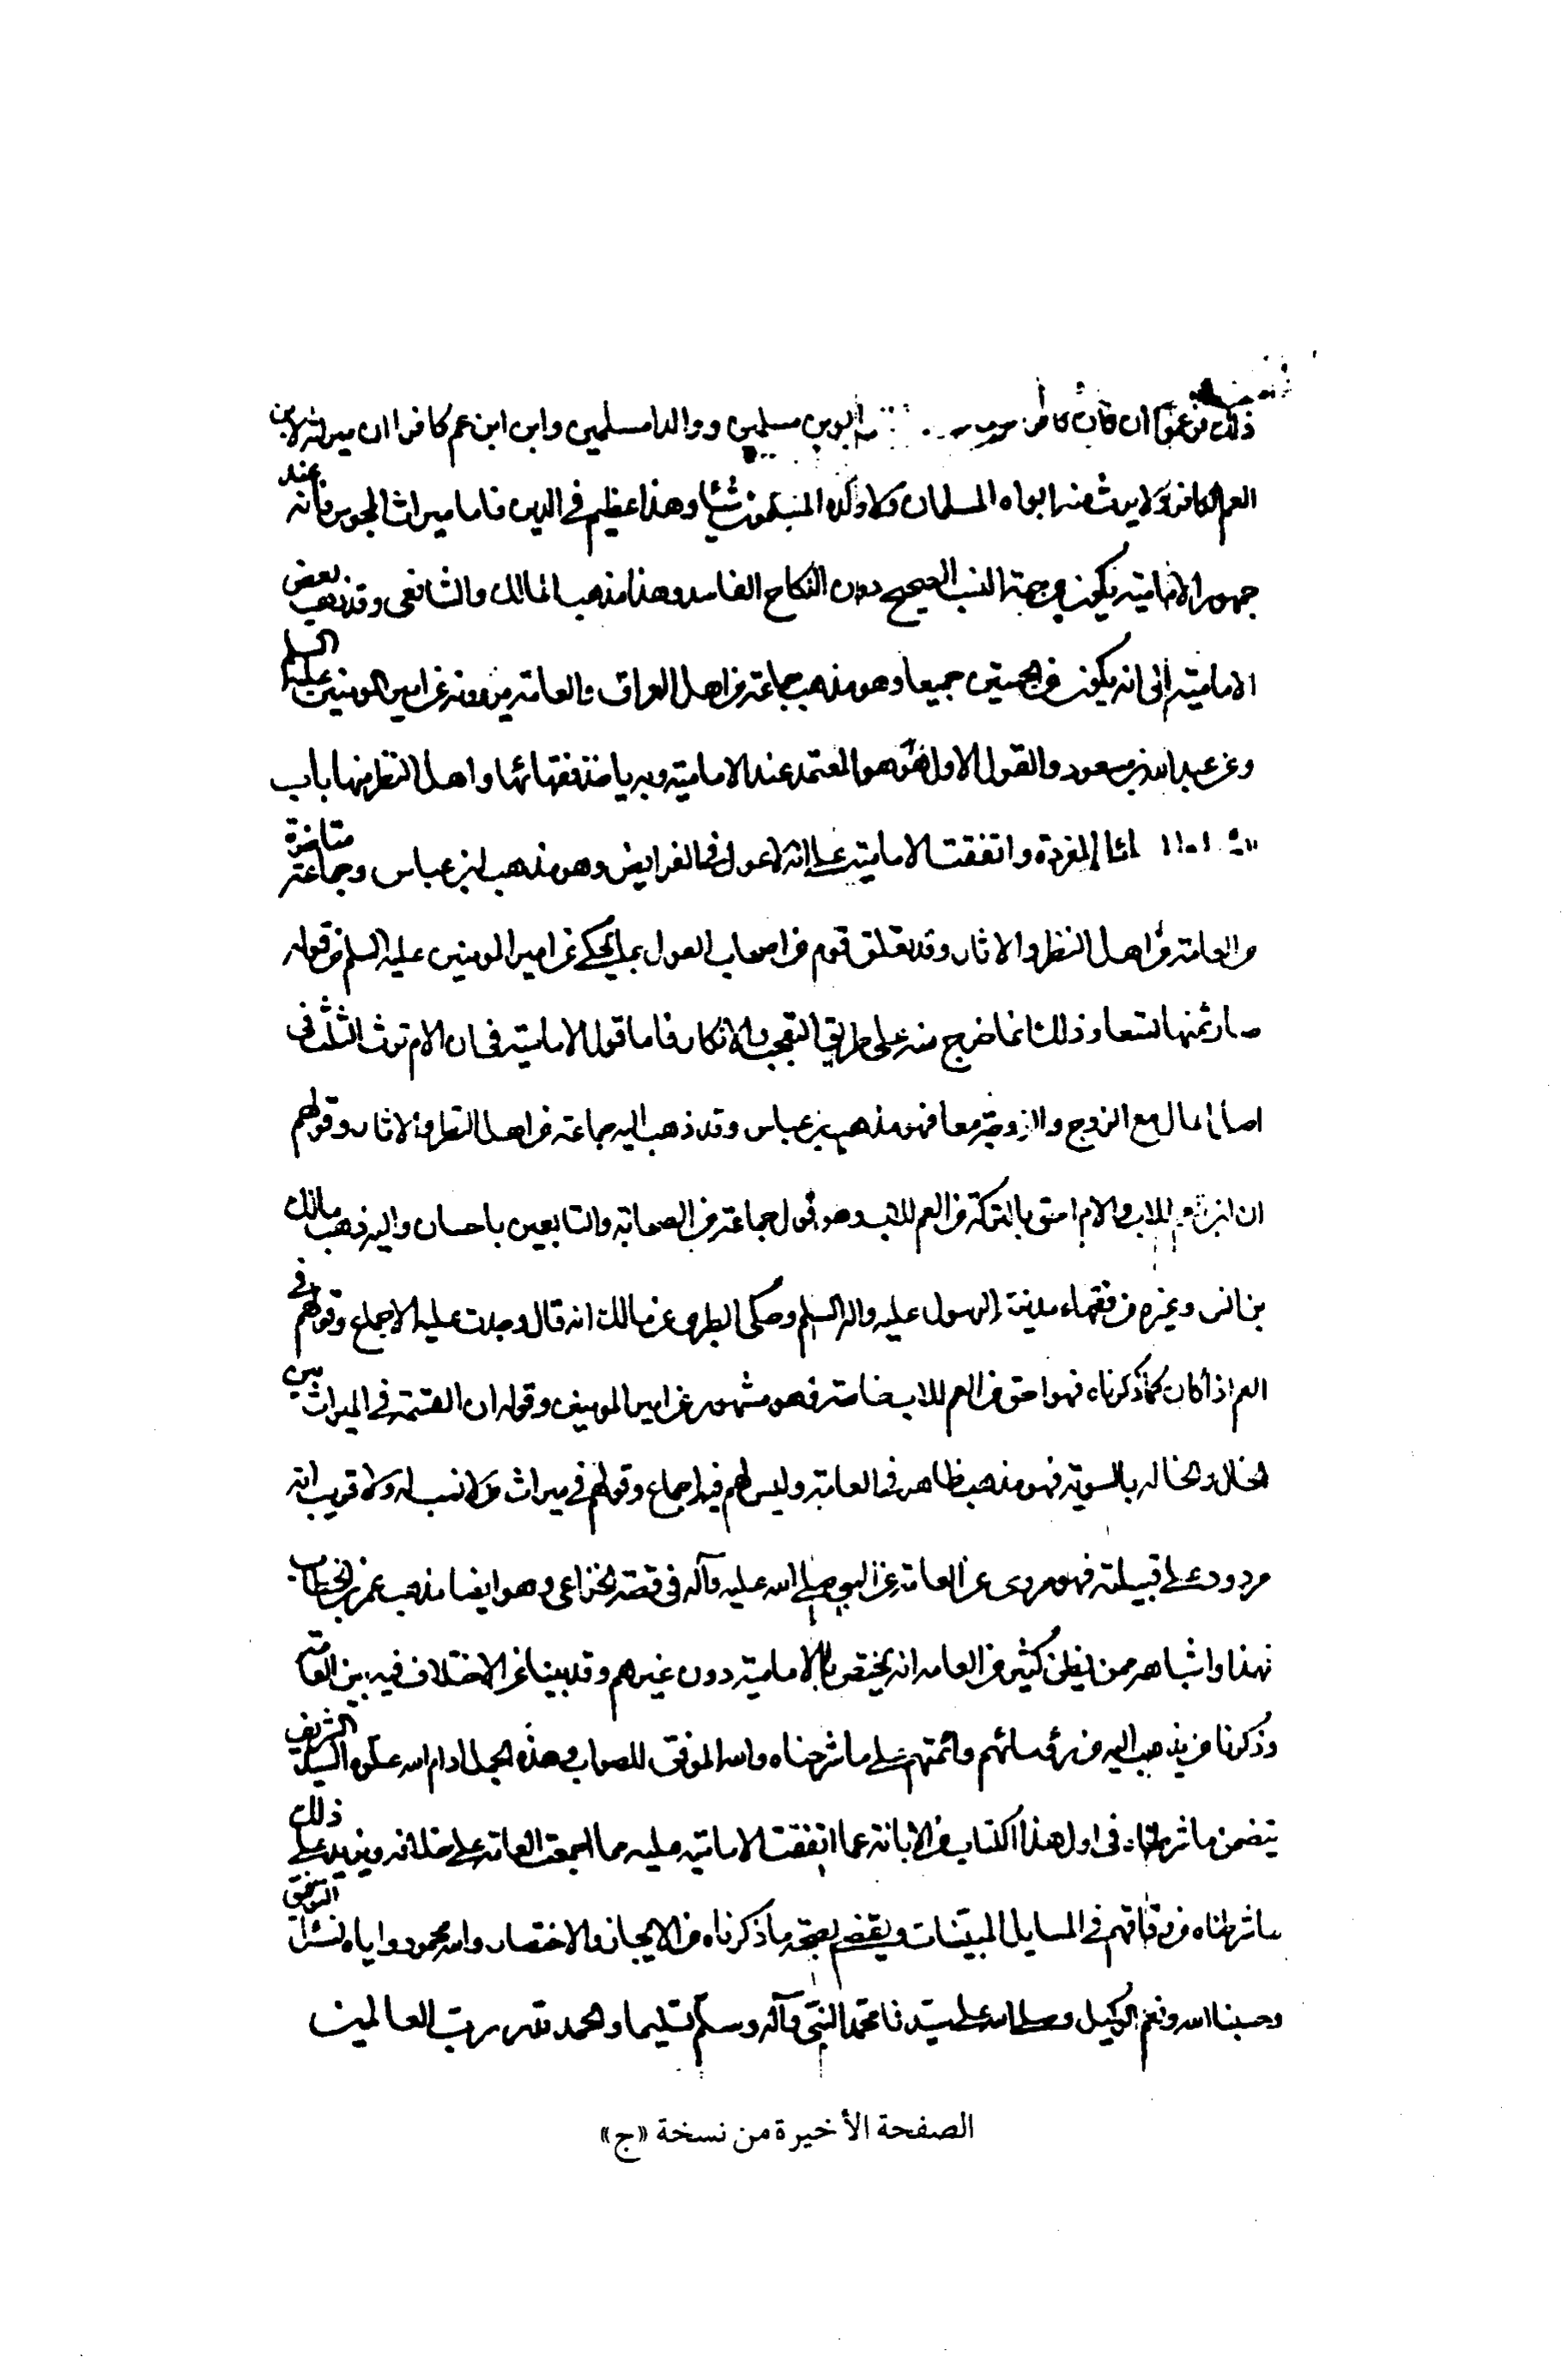 ذلك فزعموا ان من مات كافرا ابوين مسلمين ووالدا مسلمين وابن ابن عم كافرا ان ميراثه لابن
العم الكافر ولا يرث منه ابواه المسلمان ولا ولده المسلمون شيئا وهذا عظيم في الدين فاما ميراث المجوس فانه عند
جمهور الامامية يكون من جهة النسب الصحيح دون النكاح الفاسد وهذا مذهب المالك والشافعي وقد ذهب بعض
الامامية الى انه يكون من الجهتين جميعا وهو مذهب جماعة من اهل العراق والعامة يروونه عن امير المومنين عليه السلم
وعن عبدالله بن مسعود والقول الاول هو المعتمد عند الامامية وبه ياخذ فقهائها واهل النظر منها باب
المفردة واتفقت الامامية على انه لا عول في الفرايض وهو مذهب ابن عباس وجماعة متاخرة
من العامة من اهل النظر والاثار وقد تعلق قوم من اصحاب العول بما يحكى عن امير المومنين عليه السلم من قوله
صار ثمنها تسعا وذلك انما خرج منه على طريق التعجب والانكار فاما قول الامامية في ان الام ترث الثلث في
اصل المال مع الزوج والزوجة معا فهو مذهب بن عباس وقد ذهب اليه جماعة من اهل النظر والاثار وقولهم
ان ابن العم للاب والام احق بالتركة من العم للاب وهو قول جماعة من الصحابة والتابعين باحسان واليه ذهب مالك
بن انس وغيره من فقهاء مدينة الرسول عليه واله السلم وحكى الطبري عن مالك انه قال وجدت عليه الاجماع وقولهم في
العم اذا كان كما ذكرناه فهو احق من العم للاب خاصة فهو مشهور عن امير المومنين وقوله ان القسمة في الميراث بين
الخال والخاله بالسوية فهو مذهب ظاهر في العامة وليس لهم فيه اجماع وقولهم في ميراث من لا نسب له ولا قريب انه
مردود على قبيلته فهو مروى عن العامة عن النبي صلى الله عليه وآله في قصة الخزاعى وهو ايضا مذهب عمر بن الخطاب
فهذا واشباهه ممن يظن كثير من العامه انه يختص به الامامية دون غيرهم وقد بينا عن الاختلاف فيه بين العامة
وذكرنا من يذهب اليه من رؤسائهم وائمتهم على ما شرحناه والله الموفق للصواب وهذه الجمل ادام الله علو السيد الشريف
يتضمن ما شرطناه في اول هذا الكتاب من الابانة عما اتفقت الامامية عليه مما اجمعت العامة على خلافه ويزيد على ذلك
ما شرطناه من وفاقهم في المسايل المبينات ويقضى بصحة ما ذكرناه من الايجاز والاختصار والله محمود واياه نسئل التوفيق
وحسبنا الله ونعم الوكيل وصلى الله على سيدنا محمد النبي وآله وسلم تسليما والحمد لله رب العالمين
الصفحة الأخيرة من نسخة «ج»